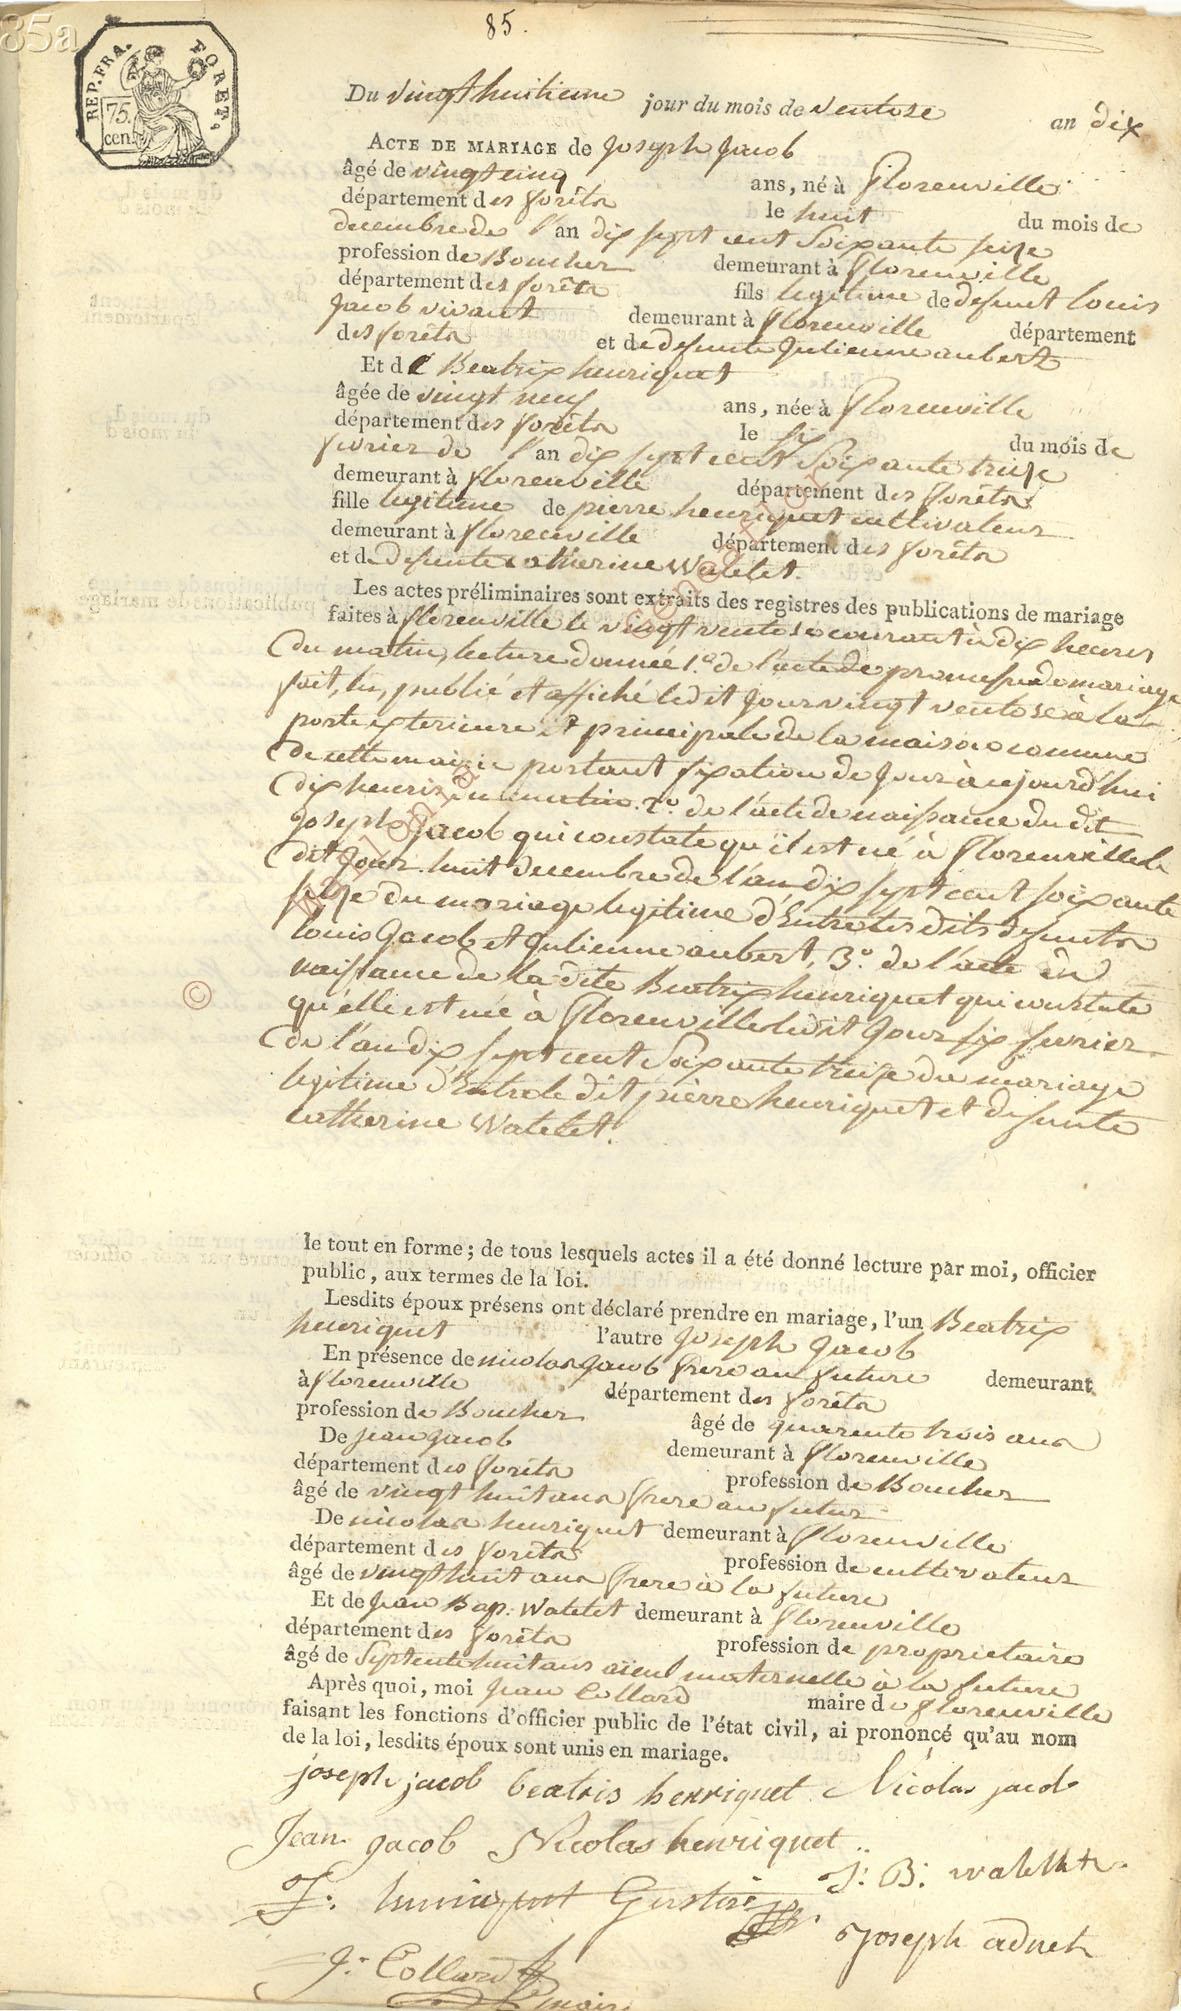 85a
85.
REP. FRA. FORET,
75.
cen.
Du vingt huitieme jour du mois de ventose an dix
ACTE DE MARIAGE de Joseph Jacob
âgé de vingt cinq ans, né à florenville
département des forêts le huit du mois de
decembre de l'an dix sept cent soixante seize
profession de Boucher demeurant à florenville
département des forêts fils legitime de defunt louis
Jacob vivant demeurant à florenville département
des forêts et de defunte Julienne aubert
Et de Beatrix henriquet
âgée de vingt neuf ans, née à florenville
département des forêts le six du mois de
fevrier de l'an dix sept cent soixante treize
demeurant à florenville département des forêts
fille legitime de pierre henriquet cultivateur
demeurant à florenville département des forêts
et de defunte catherine Watelet.
Les actes préliminaires sont extraits des registres des publications de mariage
faites à florenville le vingt ventose courant à dix heures
du matin, lecture donnée 1.º de l'acte de promesse de mariage
fait, lu, publié et affiché ledit Jour vingt ventose à la
porte exterieure et principale de la maison comune
de cette mairie portant fixation de Jour à aujourd'hui
dix heures du matin. 2.º de l'acte de naissance du dit
Joseph Jacob qui constate qu'il est né à florenville le
dit Jour huit decembre de l'an dix sept cent soixante
seize du mariage legitime d'Entre les dits defunts
louis Jacob et Julienne aubert, 3.º de l'acte de
naissance de la dite Beatrix henriquet qui constate
qu'elle est née à florenville ledit Jour six fevrier
de l'an dix sept cent soixante treize du mariage
legitime d'Entre le dit pierre henriquet et defunte
catherine Watelet.
le tout en forme; de tous lesquels actes il a été donné lecture par moi, officier
public, aux termes de la loi.
Lesdits époux présens ont déclaré prendre en mariage, l'un Beatrix
henriquet l'autre Joseph Jacob
En présence de nicolas Jacob frere au future demeurant
à florenville département des forêts
profession de Boucher âgé de quarente trois ans
De jean Jacob demeurant à florenville
département des forêts profession de Boucher
âgé de vingt huit ans frere au futur
De nicolas henriquet demeurant à florenville
département des forêts profession de cultivateur
âgé de vingt huit ans frere à la future
Et de Jean Bap. Watelet demeurant à florenville
département des forêts profession de proprietaire
âgé de Septente huit ans aieul maternelle à la future
Après quoi, moi Jean Collard maire de florenville
faisant les fonctions d'officier public de l'état civil, ai prononcé qu'au nom
de la loi, lesdits époux sont unis en mariage.
joseph jacob beatris henriquet Nicolas jacob
Jean jacob Nicolas henriquet
J: B: watelet
joseph adnet
J: Collard
maire
©